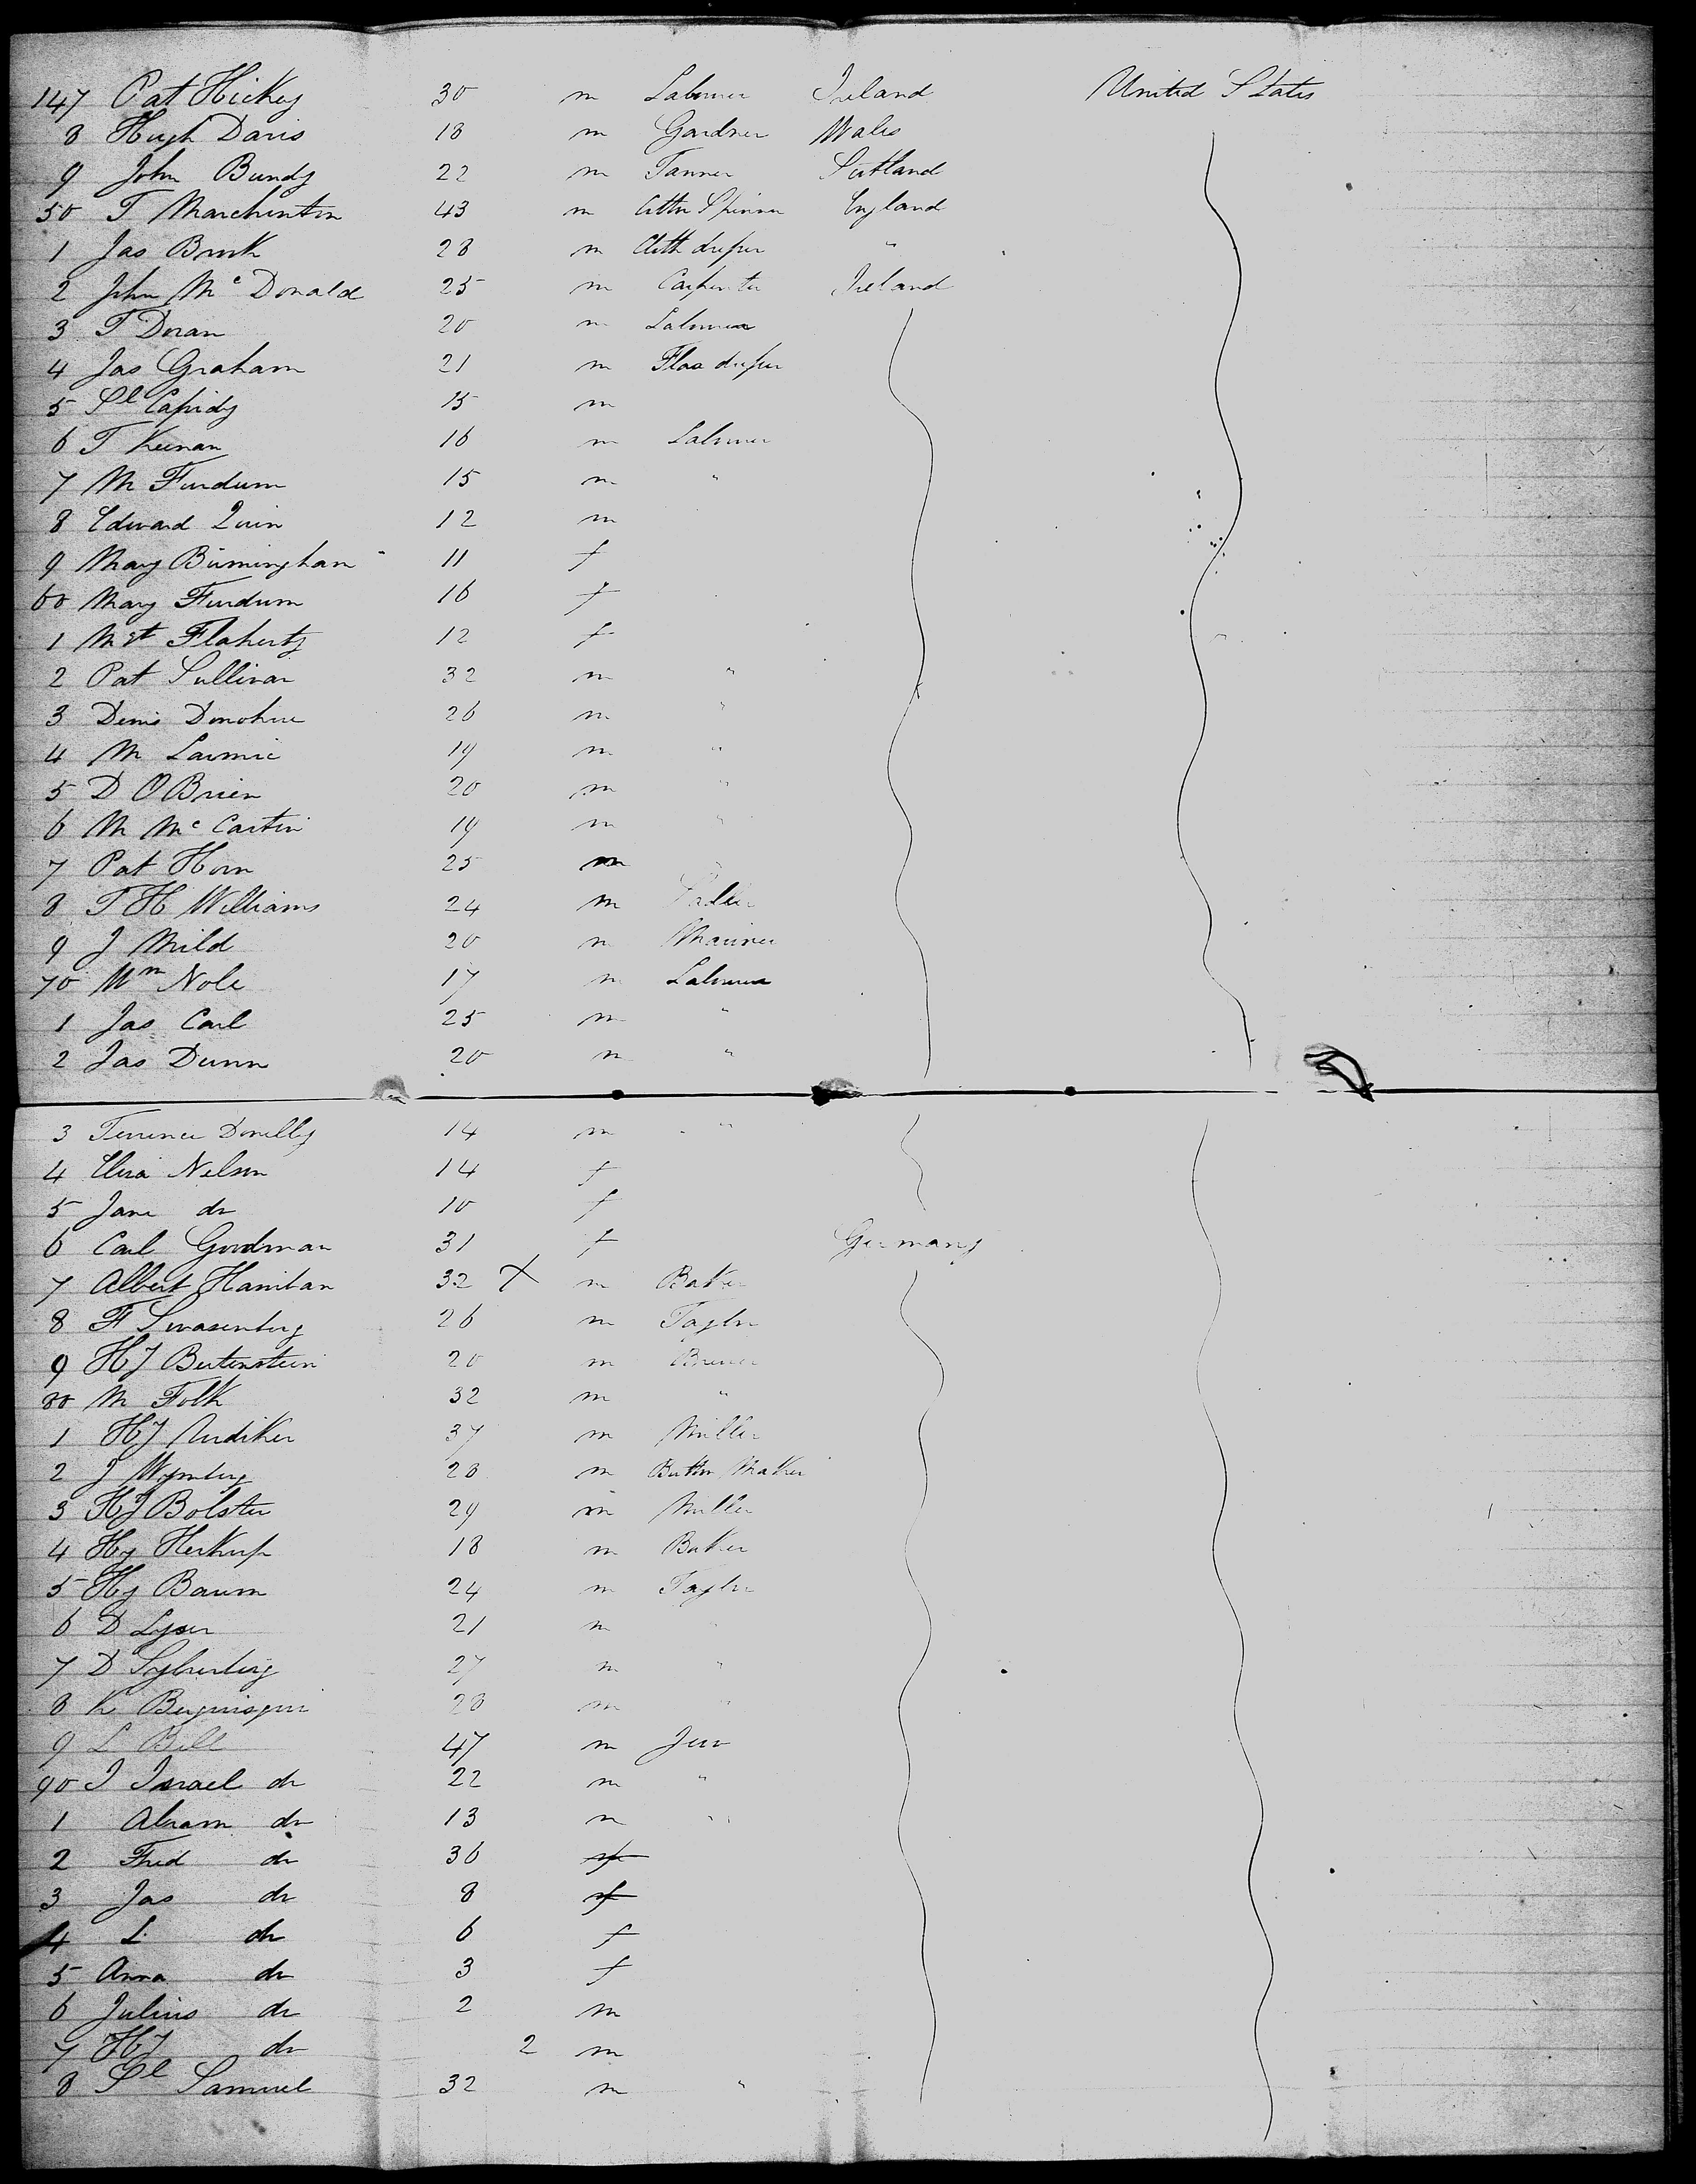 147 Pat Hickey 30 m Labourer Ireland United States
8 Hugh Davis 18 m Gardner Wales
9 John Bundy 22 m Tanner Scotland
50 T Marchinton 43 m Cotton Spinner England
1 Jas Brook 28 m Cloth dresser "
2 John Mc Donald 25 m Carpenter Ireland
3 T Doran 20 m Labourer
4 Jas Graham 21 m Flax dresser
5 Sl Cassidy 15 m
6 T Keenan 16 m Labourer
7 M Furdum 15 m "
8 Edward Quin 12 m
9 Mary Birmingham 11 f
60 Mary Furdum 16 f
1 Mgt Flaherty 12 f
2 Pat Sullivan 32 m "
3 Denis Donohue 26 m "
4 M 19 m "
5 D O Brien 20 m "
6 M Mc Cartin 19 m "
7 Pat Horn 25 m
8 T H Williams 24 m
9 J Mild 20 m Mariner
70 Wm Nole 17 m Labourer
1 Jas Carl 25 m "
2 Jas Dunn 20 m "
3 Terrence Donelly 14 m "
4 Eliza Nelson 14 f
5 Jane do 10 f
6 Carl Goodman 31 f Germany
7 Albert Hanitan 32 X m Baker
8 F Swasenberg 26 m Taylor
9 Hy Bertenstein 20 m Brewer
80 M Folk 32 m "
1 Hy 37 m Miller
2 J 28 m Button Maker
3 Hy Bolster 29 m Miller
4 Hy Herkup 18 m Baker
5 Hy Baum 24 m Taylor
6 D Lyser 21 m
7 D 27 m "
8 K 28 m "
9 L Bell 47 m Jew
90 I Israel do 22 m "
1 Abram do 13 m "
2 Fred do 36
3 Jas do 8
4 L do 6 f
5 Anna do 3 f
6 Julius do 2 m
7 Hy do 2 m
8 Sl Samuel 32 m "